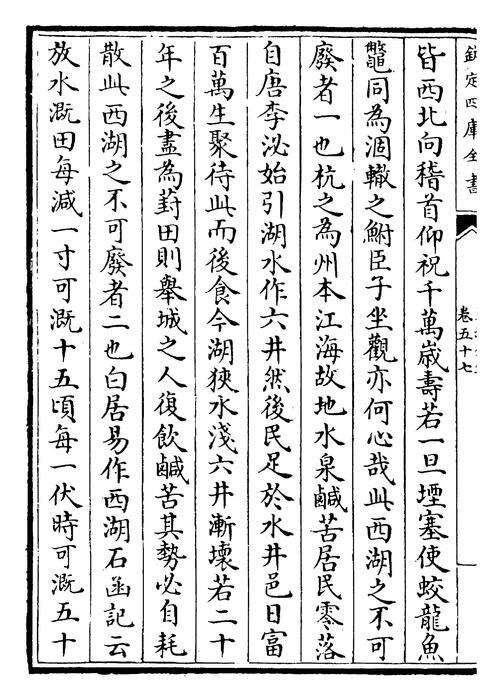 欽定四庫全書
卷五十七
皆西北向稽首仰祝千萬嵗壽若一旦堙塞使蛟龍魚
鼈同為涸轍之鮒臣子坐觀亦何心哉此西湖之不可
廢者一也杭之為州本江海故地水泉鹹苦居民零落
自唐李泌始引湖水作六井然後民足於水井邑日富
百萬生聚待此而後食今湖狹水淺六井漸壞若二十
年之後盡為葑田則舉城之人復飲鹹苦其勢必自耗
散此西湖之不可廢者二也白居易作西湖石函記云
放水溉田每減一寸可溉十五頃每一伏時可溉五十